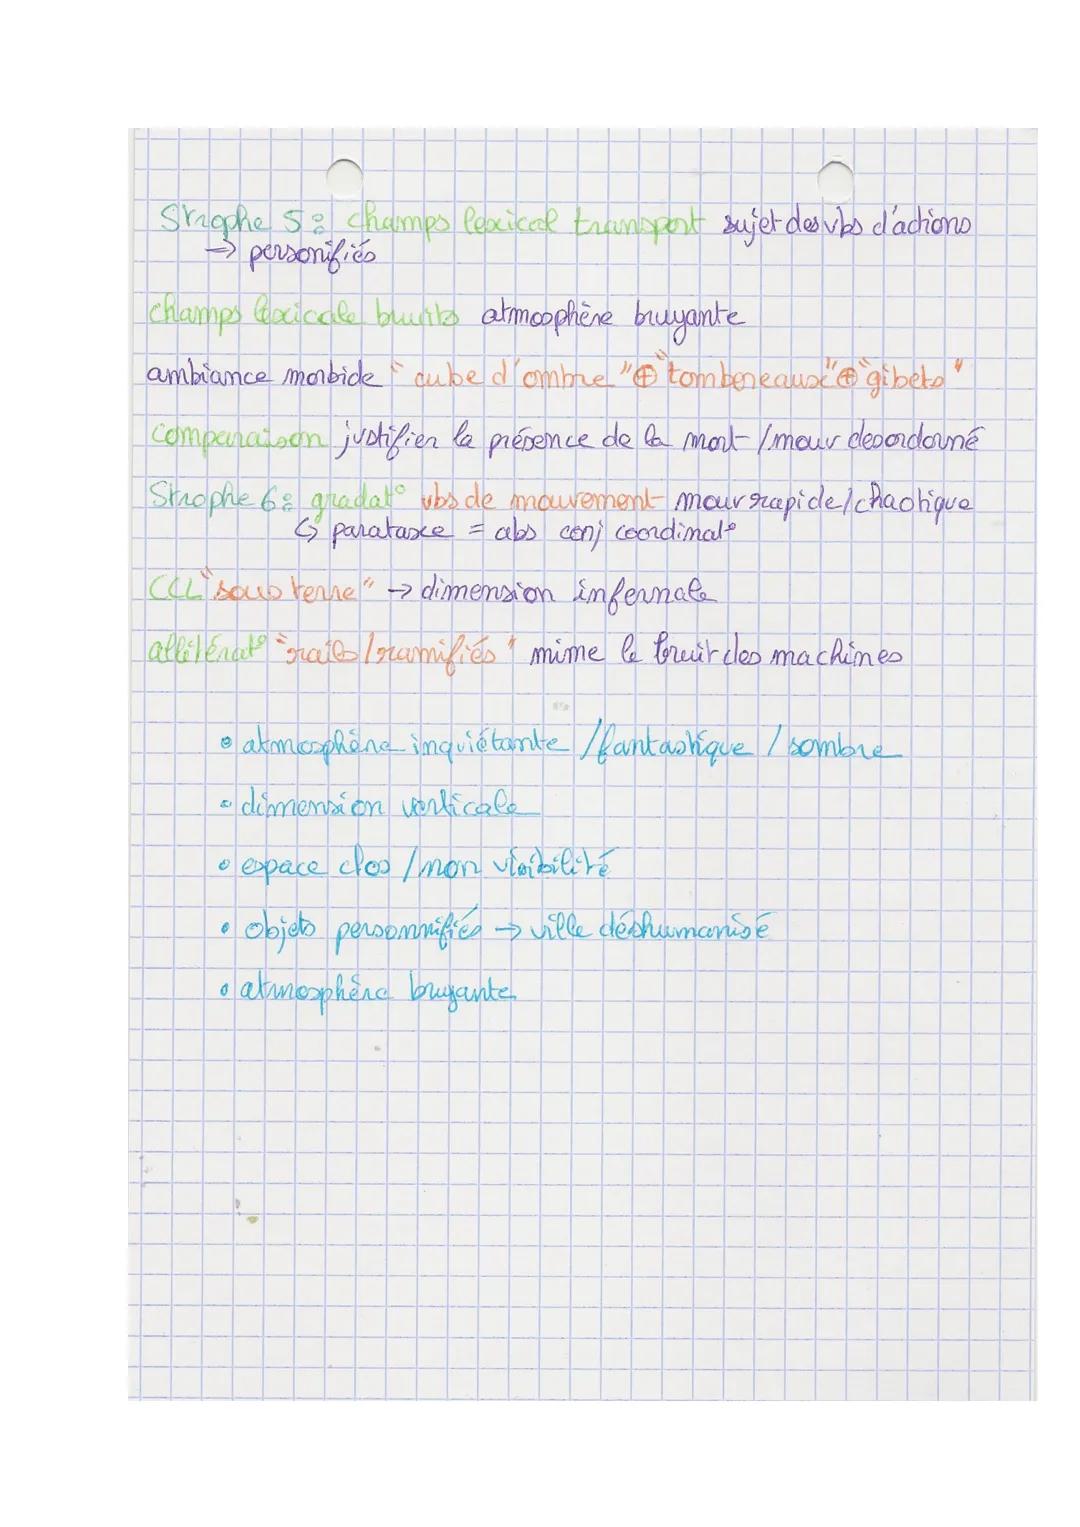 Strophe 5: champs lexical transport sujet des vbs d'actions
→ personifiés
champs lexicale bruits atmosphère bruyante
ambiance morbide "cube d'ombre" ⊕ "tombereaux" ⊕ "gibets"
comparaison justifier la présence de la mort / mouv desordonné
Strophe 6: gradat° vbs de mouvement mouv rapide / chaotique
↳ parataxe = abs conj coordinat°
CCL "sous terre" → dimension infernale
allitérat° "rails / ramifiés" mime le bruit des machines
• atmosphère inquiétante / fantastique / sombre
• dimension verticale
• espace clos / non visibilité
• objets personnifiés → ville déshumanisé
• atmosphère bruyante